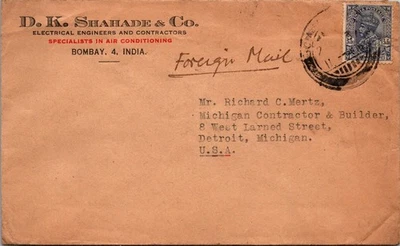 D. K. SHAHADE & CO.
ELECTRICAL ENGINEERS AND CONTRACTORS
SPECIALISTS IN AIR CONDITIONING
BOMBAY, 4. INDIA.
Foreign Mail
Mr. Richard C. Mertz,
Michigan Contractor & Builder,
8 West Larned Street,
Detroit, Michigan.
U.S.A.